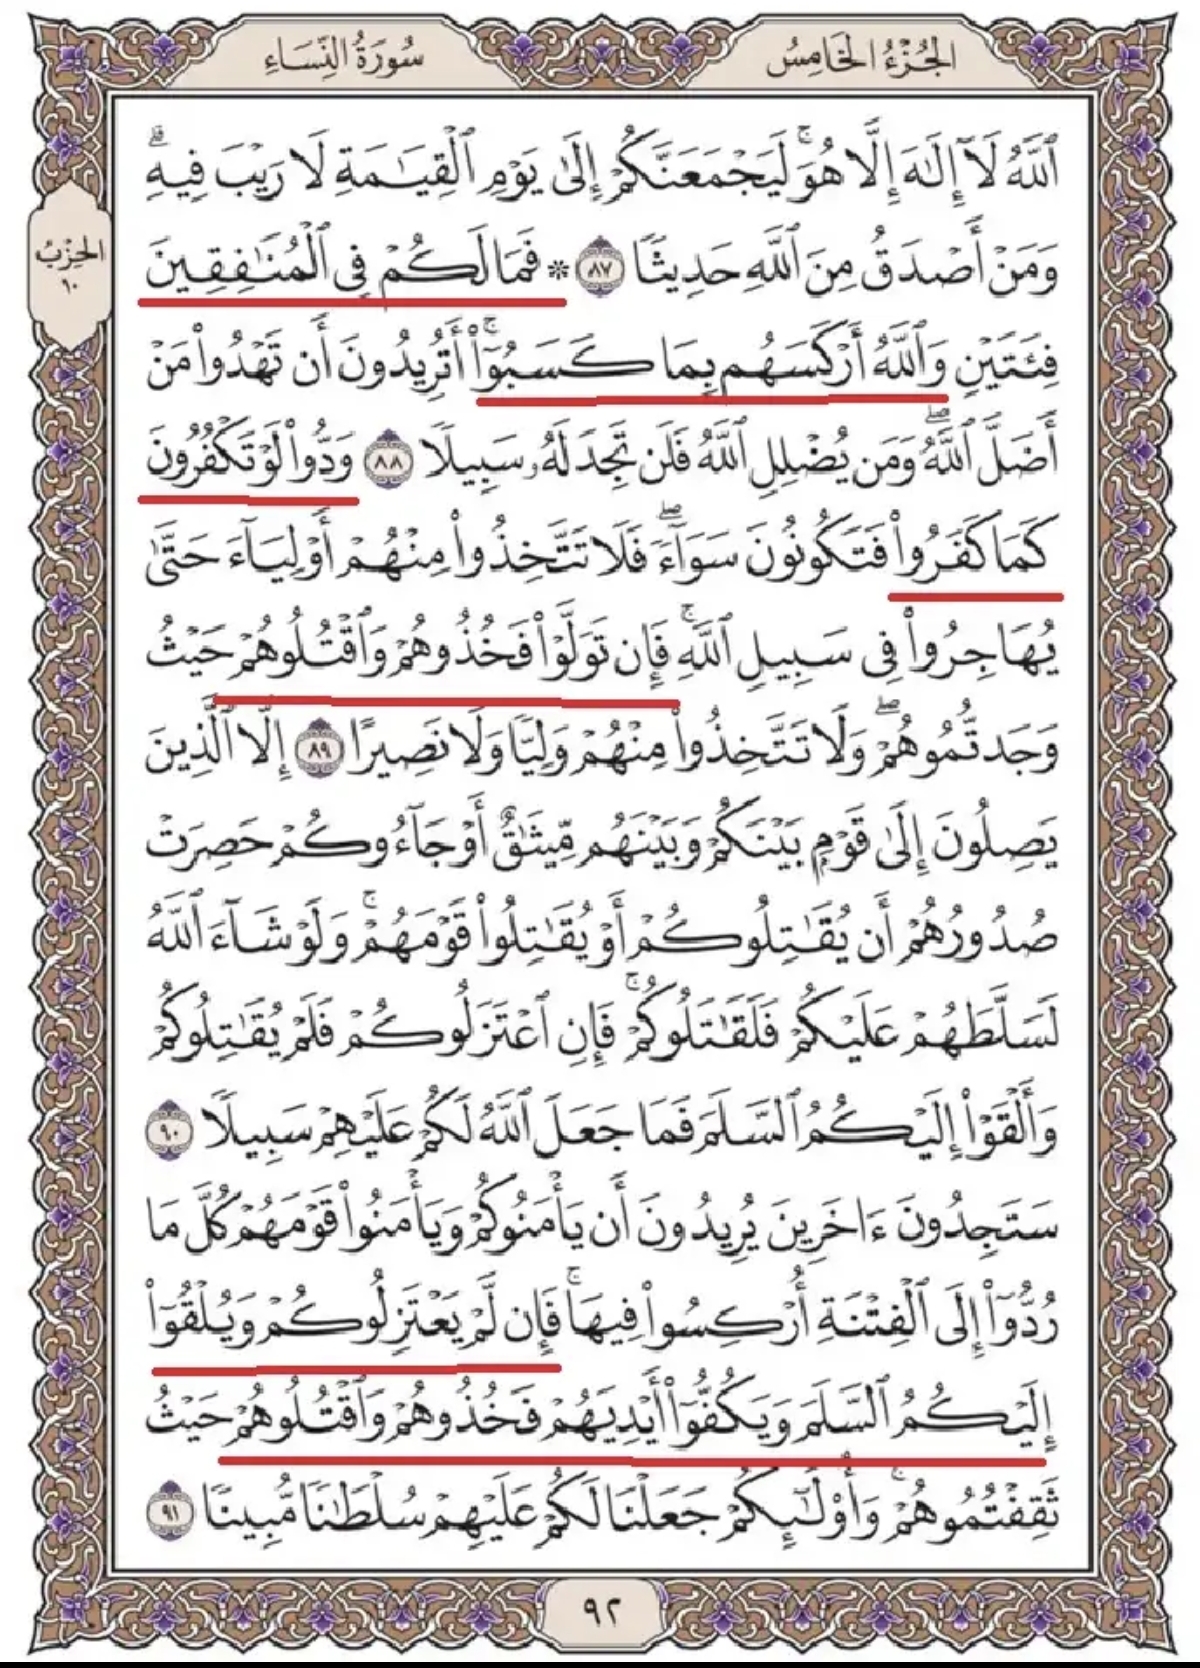 الجُزْءُ الخَامِسُ
سُورَةُ النِّسَاءِ
ٱللَّهُ لَآ إِلَٰهَ إِلَّا هُوَۚ لَيَجْمَعَنَّكُمْ إِلَىٰ يَوْمِ ٱلْقِيَٰمَةِ لَا رَيْبَ فِيهِۗ
وَمَنْ أَصْدَقُ مِنَ ٱللَّهِ حَدِيثًا ٨٧ * فَمَا لَكُمْ فِى ٱلْمُنَٰفِقِينَ
فِئَتَيْنِ وَٱللَّهُ أَرْكَسَهُم بِمَا كَسَبُوٓا۟ۚ أَتُرِيدُونَ أَن تَهْدُوا۟ مَنْ
أَضَلَّ ٱللَّهُۖ وَمَن يُضْلِلِ ٱللَّهُ فَلَن تَجِدَ لَهُۥ سَبِيلًا ٨٨ وَدُّوا۟ لَوْ تَكْفُرُونَ
كَمَا كَفَرُوا۟ فَتَكُونُونَ سَوَآءًۖ فَلَا تَتَّخِذُوا۟ مِنْهُمْ أَوْلِيَآءَ حَتَّىٰ
يُهَاجِرُوا۟ فِى سَبِيلِ ٱللَّهِۚ فَإِن تَوَلَّوْا۟ فَخُذُوهُمْ وَٱقْتُلُوهُمْ حَيْثُ
وَجَدتُّمُوهُمْۖ وَلَا تَتَّخِذُوا۟ مِنْهُمْ وَلِيًّا وَلَا نَصِيرًا ٨٩ إِلَّا ٱلَّذِينَ
يَصِلُونَ إِلَىٰ قَوْمٍۭ بَيْنَكُمْ وَبَيْنَهُم مِّيثَٰقٌ أَوْ جَآءُوكُمْ حَصِرَتْ
صُدُورُهُمْ أَن يُقَٰتِلُوكُمْ أَوْ يُقَٰتِلُوا۟ قَوْمَهُمْۚ وَلَوْ شَآءَ ٱللَّهُ
لَسَلَّطَهُمْ عَلَيْكُمْ فَلَقَٰتَلُوكُمْۚ فَإِنِ ٱعْتَزَلُوكُمْ فَلَمْ يُقَٰتِلُوكُمْ
وَأَلْقَوْا۟ إِلَيْكُمُ ٱلسَّلَمَ فَمَا جَعَلَ ٱللَّهُ لَكُمْ عَلَيْهِمْ سَبِيلًا ٩٠
سَتَجِدُونَ ءَاخَرِينَ يُرِيدُونَ أَن يَأْمَنُوكُمْ وَيَأْمَنُوا۟ قَوْمَهُمْ كُلَّ مَا
رُدُّوٓا۟ إِلَى ٱلْفِتْنَةِ أُرْكِسُوا۟ فِيهَاۚ فَإِن لَّمْ يَعْتَزِلُوكُمْ وَيُلْقُوٓا۟
إِلَيْكُمُ ٱلسَّلَمَ وَيَكُفُّوٓا۟ أَيْدِيَهُمْ فَخُذُوهُمْ وَٱقْتُلُوهُمْ حَيْثُ
ثَقِفْتُمُوهُمْۚ وَأُو۟لَٰٓئِكُمْ جَعَلْنَا لَكُمْ عَلَيْهِمْ سُلْطَٰنًا مُّبِينًا ٩١
الحِزْبُ
١٠
٩٢